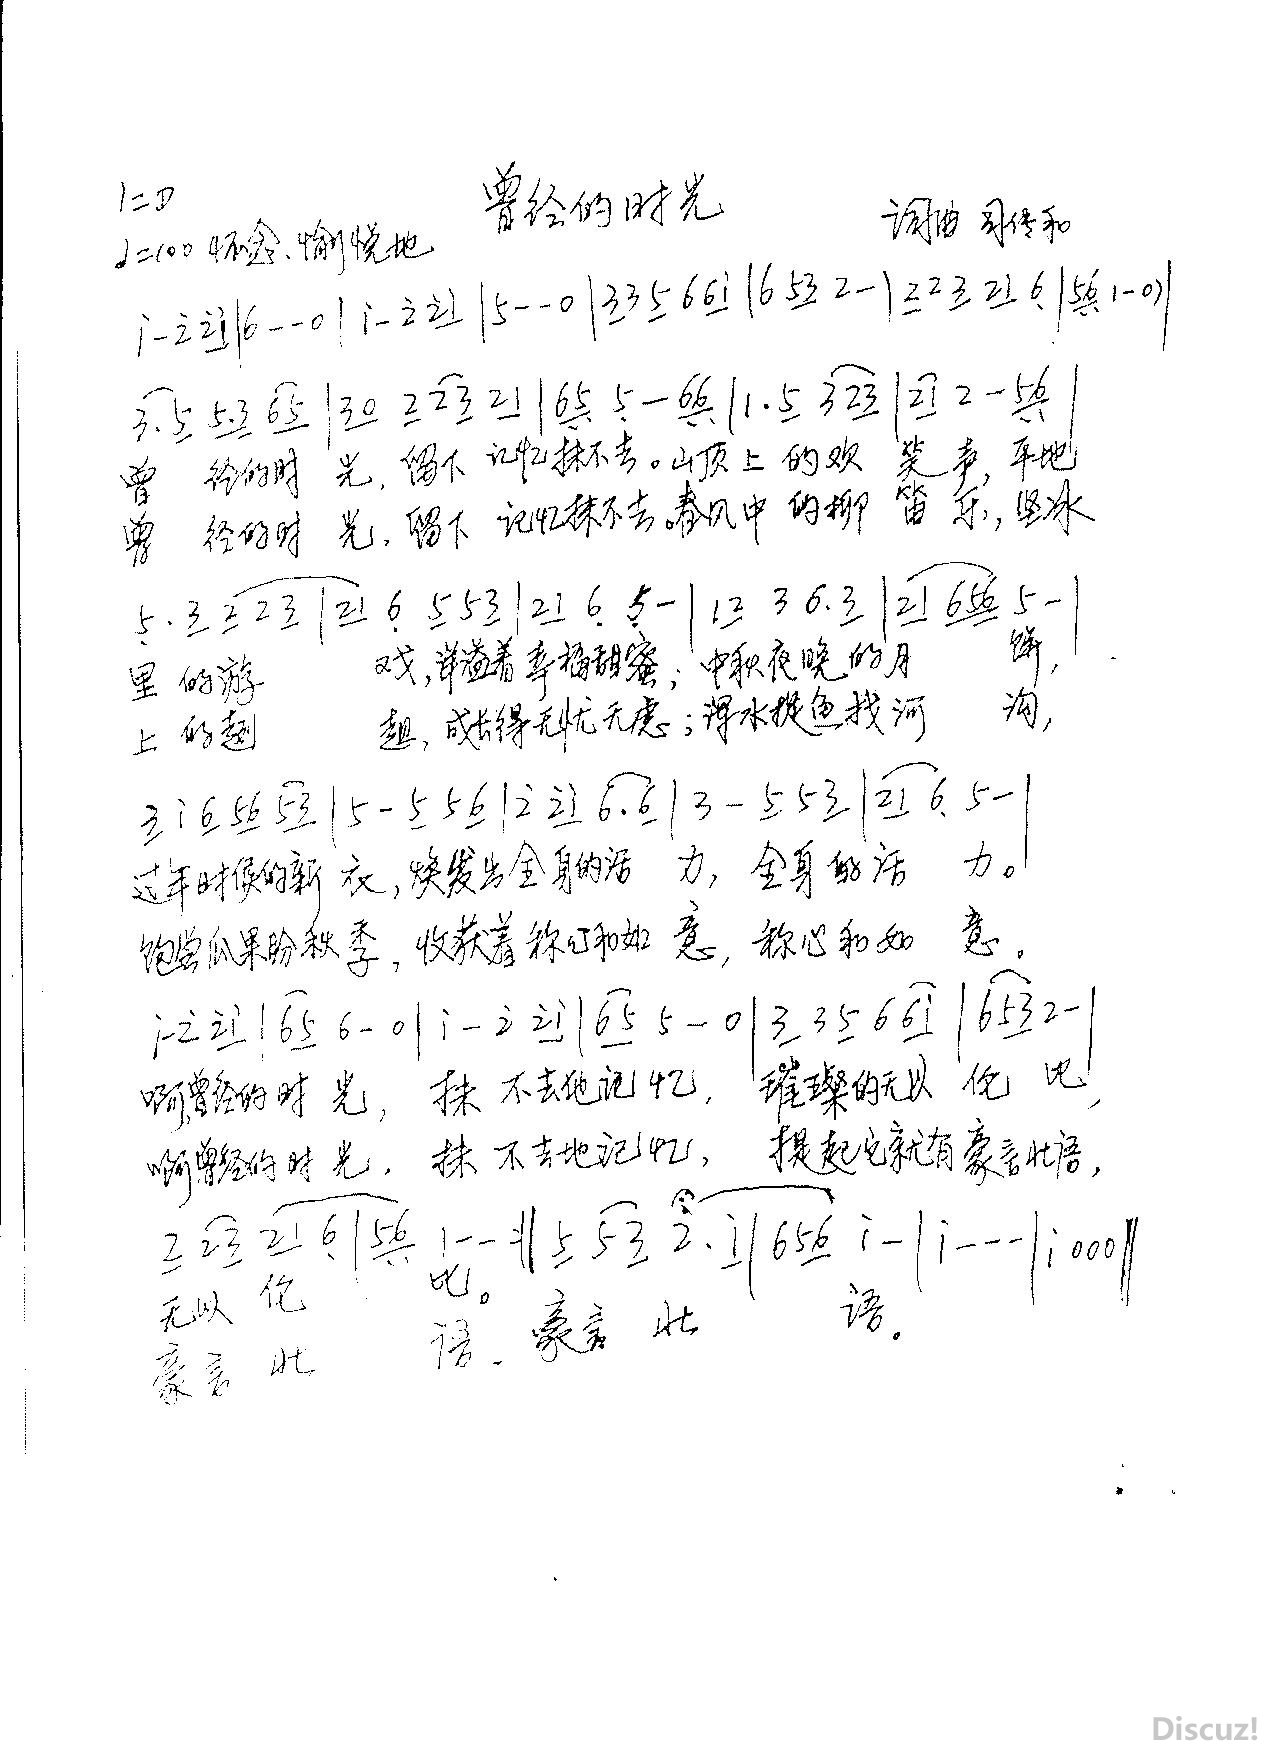 曾经的时光
1=D
词曲 司传和
♩=100 怀念、愉悦地
i - 2 21 | 6 - - 0 | i - 2 21 | 5 - - 0 | 3 3 5 6 6i | 6 53 2 - | 2 2 3 21 6 | 56 1 - 0) |
3. 5 5.3 65 | 30 2 23 21 | 65 5 - 66 | 1. 5 3 23 | 21 2 - 56 |
曾 经的时 光, 留下 记忆抹不去。山顶上 的欢 笑声, 平地
曾 经的时 光, 留下 记忆抹不去。春风中 的柳 笛 乐, 坚冰
5. 3 3 23 | 21 6 5 53 | 21 6 5 - | 12 3 6.3 | 21 656 5 - |
里 的游 戏, 洋溢着幸福甜蜜; 中秋夜晚的月 饼,
上 的趔 趄, 成长得无忧无虑; 浑水捉鱼找河 沟,
3 i 6 56 53 | 5 - 5 56 | 2 21 6.6 | 3 - 5 53 | 21 6 5 - |
过年时候的新 衣, 焕发出全身的活 力, 全身的活 力。
饱尝瓜果盼秋季, 收获着称心和如 意, 称心和如 意。
i - 2 21 | 65 6 - 0 | i - 2 21 | 65 5 - 0 | 3 35 6 6i | 653 2 - |
啊曾经的时 光, 抹 不去地记忆, 璀璨的无以 伦 比,
啊曾经的时 光, 抹 不去地记忆, 提起它就有豪言壮语,
2 23 21 6 | 56 1 - - :|| 5 53 2. i | 656 i - | i - - - | i 0 0 0 ||
无以 伦 比。 语。
豪言 壮 语. 豪言 壮
Discuz!